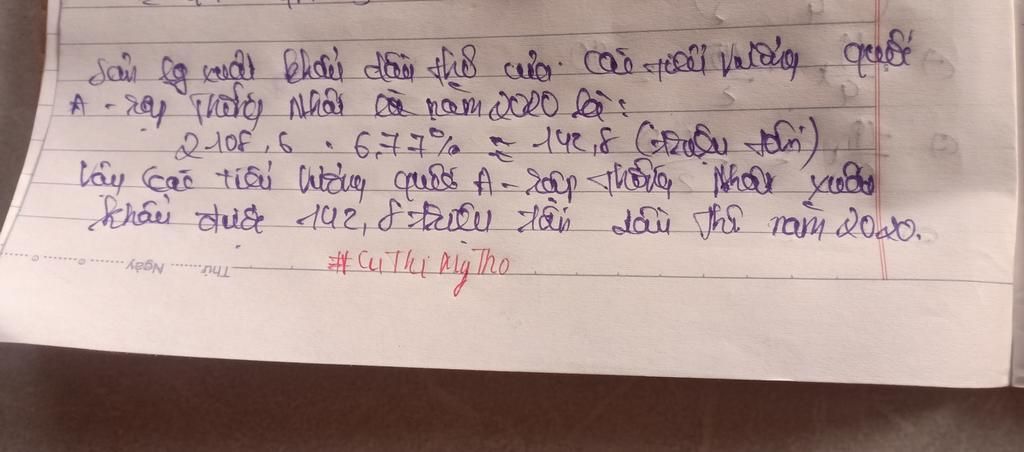 Sản lg xuất khẩu dầu thô của các tiểu vương quốc
A - rập Thống Nhất cả năm 2020 là:
2108,6 . 6,77% ≈ 142,8 (triệu tấn)
Vậy các tiểu vương quốc A - rập thống Nhất xuất
khẩu được 142,8 triệu tấn dầu thô năm 2020.
Thứ ........ Ngày ........
#CuThiMyTho